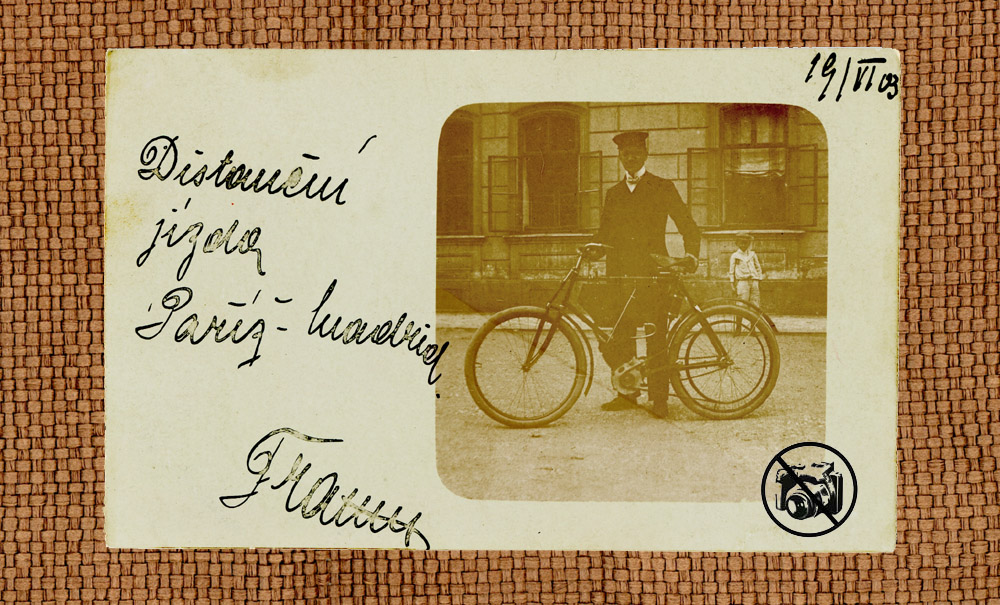 19/VI 03
Distanční
jízda
Paříž - Madrid
Framy